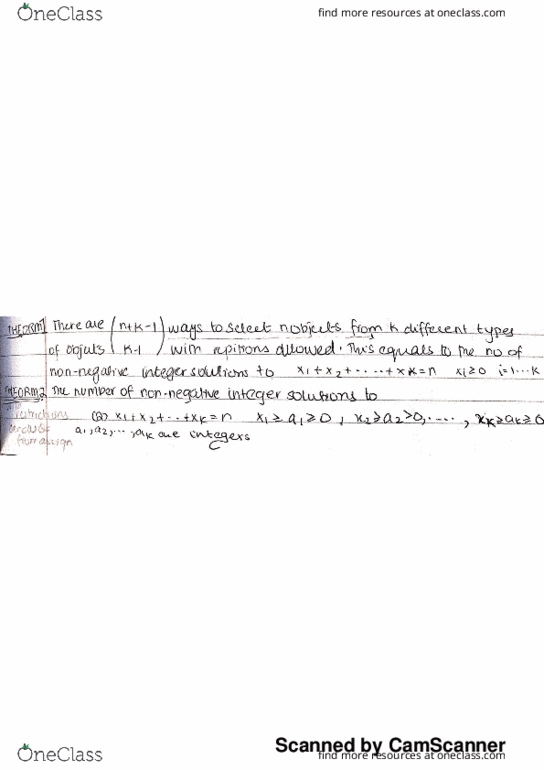 OneClass find more resources at oneclass.com
THEORM1 There are (n+k-1) ways to select n objects from k different types
of objets ( k-1 ) with repitions allowed. This equals to the no of
non-negative integer solutions to x₁+x₂+.....+xₖ=n xᵢ≥0 i=1...k
THEORM2 The number of non-negative integer solutions to
(a) x₁+x₂+...+xₖ=n x₁≥a₁≥0, x₂≥a₂≥0,....., xₖ≥aₖ≥0
a₁,a₂,...,aₖ are integers
Scanned by CamScanner
OneClass find more resources at oneclass.com